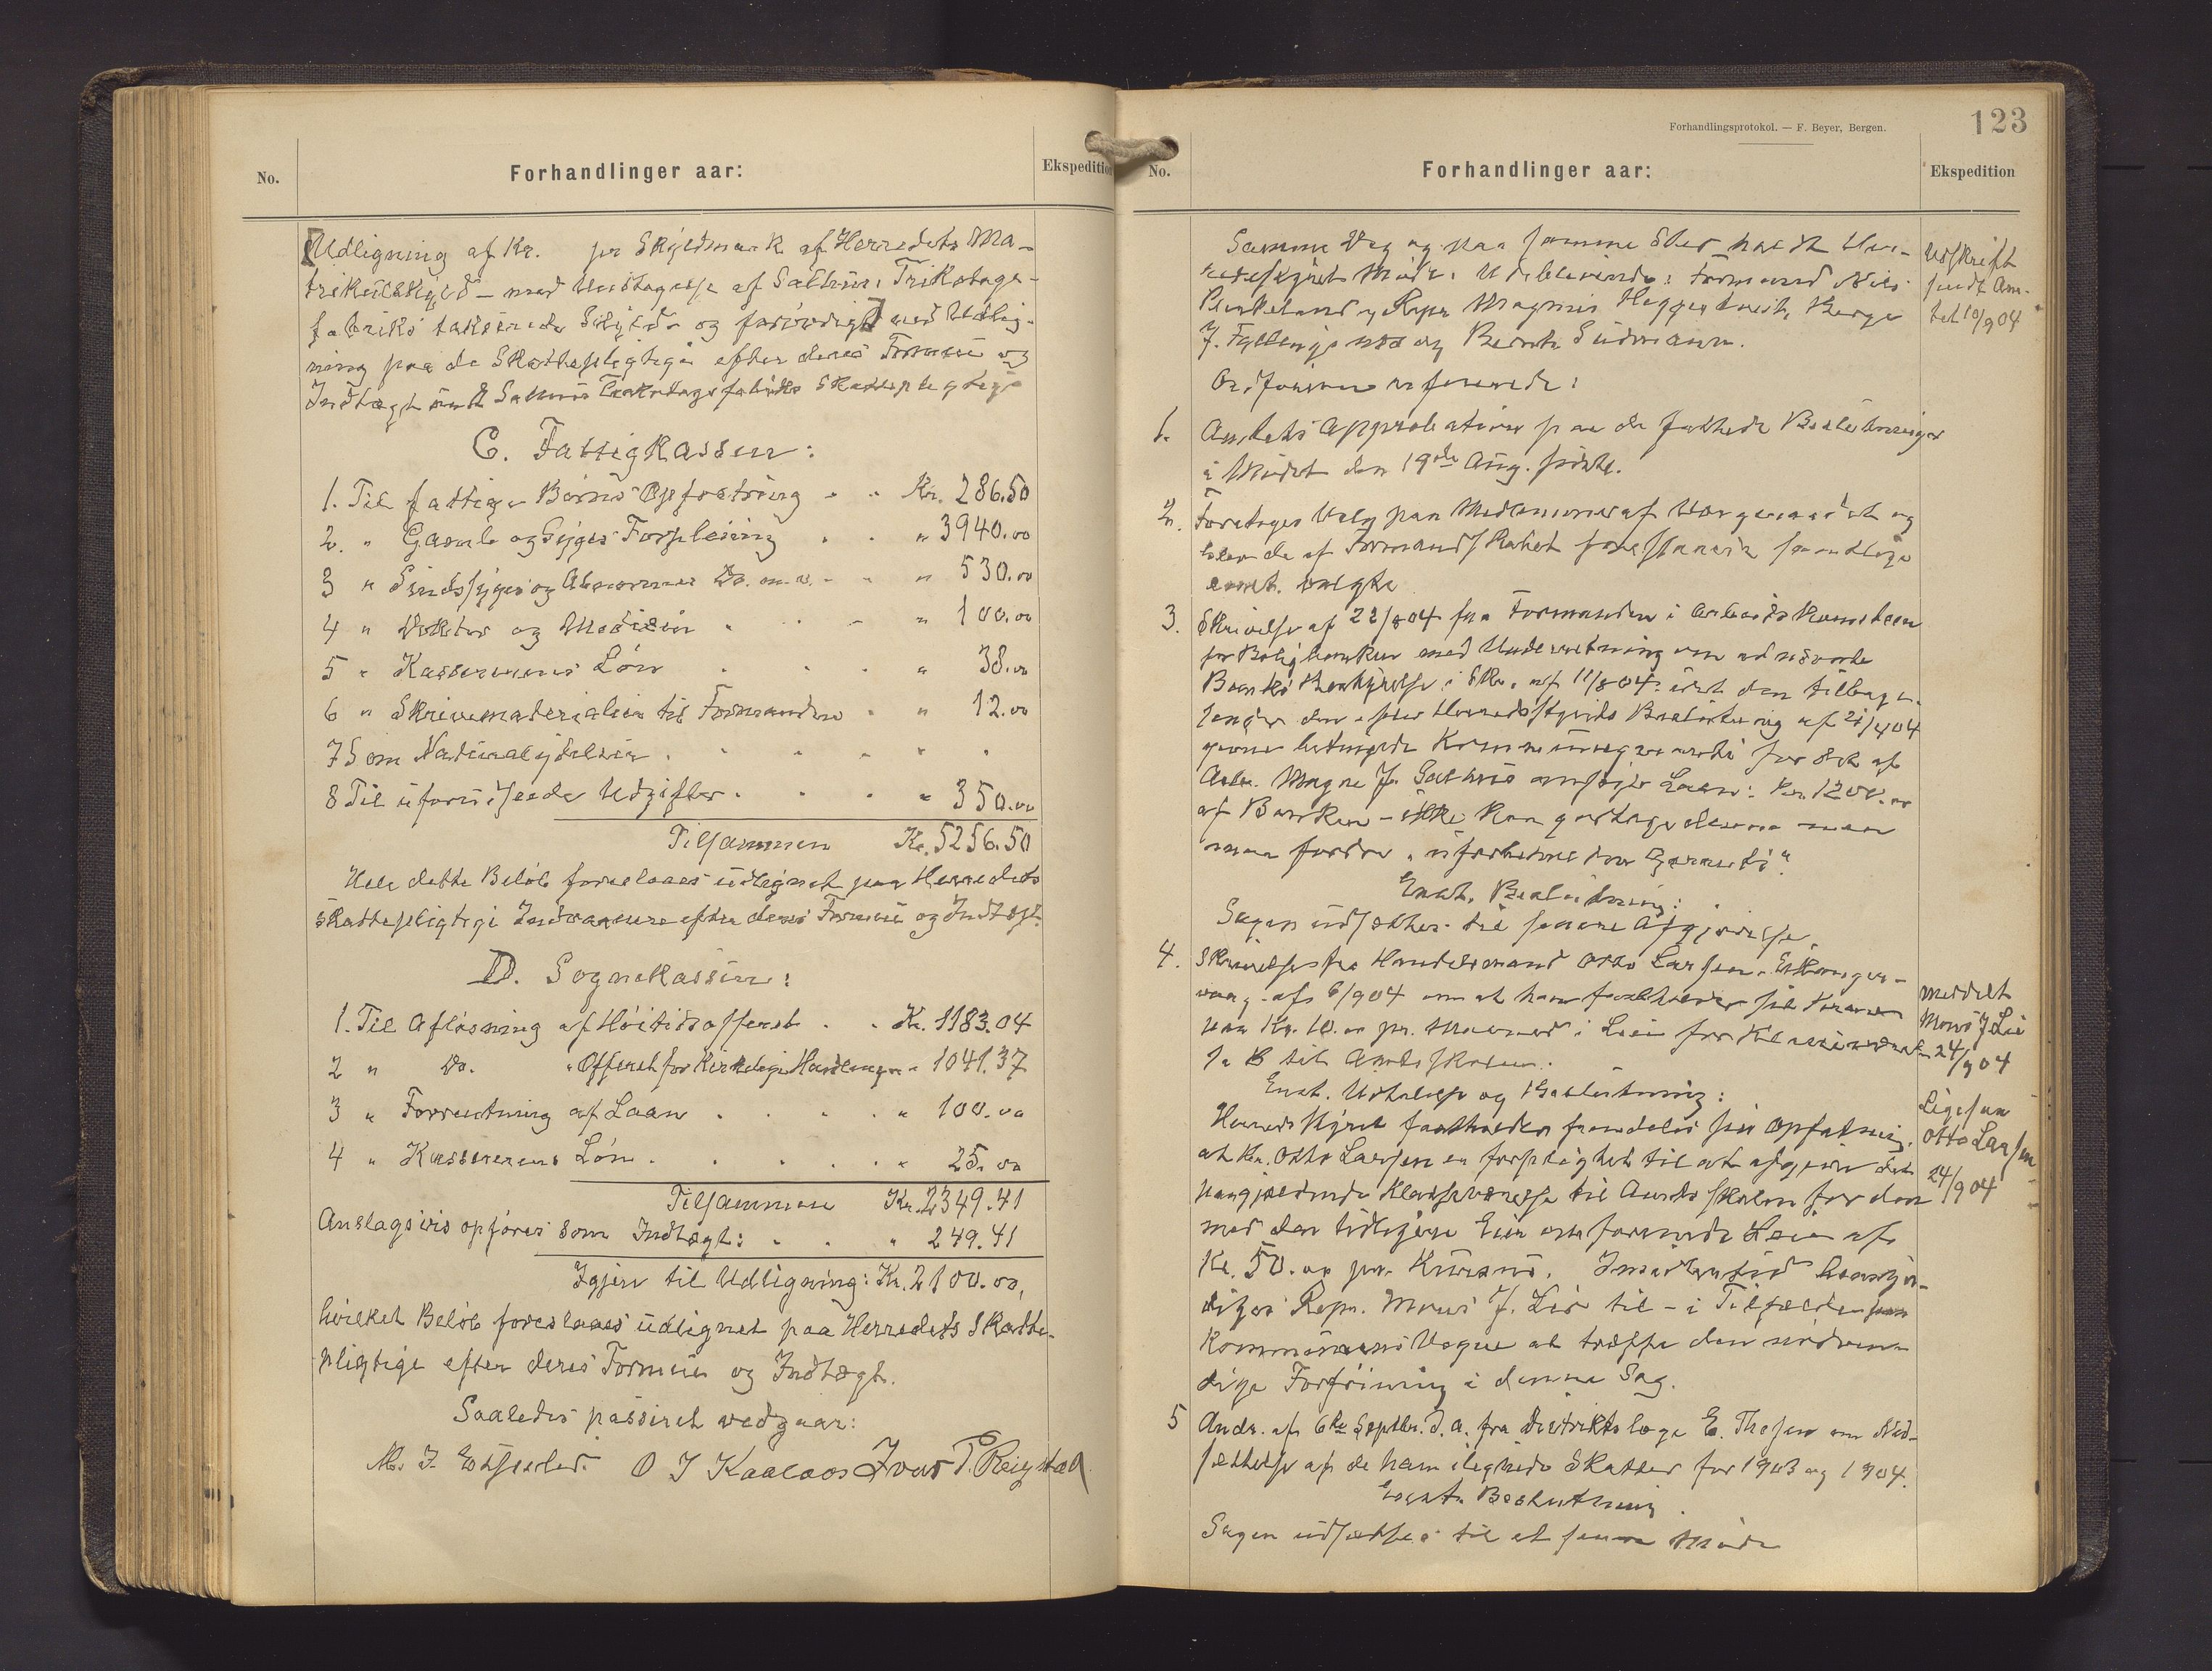 No.
Forhandlinger aar:
Ekspedition
[Udligning af Kr. pr Skyldmark af Herredets Ma-
trikulskyld - med Undtagelse af Salhus Trikotage-
fabriks takserede Skyld - og forøvrigt] ved Udlig-
ning paa de Skattepligtige efter deres Formue og
Indtægt samt Salhus Trikotagefabriks Skattepligtige
C. Fattigkassen:
1. Til fattige Børns Opfostring . . Kr. 286.50
2. " Gamle og Syges Forpleining . . " 3940.00
3 " Sindssyges og Abnormes Do. m.v. - - " 530.00
4 " Doktor og Medicin . . - " 100.00
5 " Kassererens Løn . . . " 38.00
6 " Skrivematerialier til Formanden . " 12.00
7 Som Naturalydelser . . . . "
8 Til uforudseede Udgifter . . . " 350.00
Tilsammen Kr. 5256.50
Hele dette Beløb foreslaaes udlignet paa Herredets
skattepligtige Indvaanere efter deres Formue og Indtægt.
D. Sognekassen:
1. Til Afløsning af Høitidsofferet . . Kr. 1183.04
2 " Do. " Offeret for kirkelige Handlinger " 1041.37
3 " Forrentning af Laan . . . . " 100.00
4 " Kassererens Løn . . . . . " 25.00
Tilsammen Kr. 2349.41
Anslagsvis opføres som Indtægt: . . " 249.41
Igjen til Udligning: Kr. 2100.00,
hvilket Beløb foreslaaes udlignet paa Herredets Skatte-
pligtige efter deres Formue og Indtægt.
Saaledes passeret vedgaar:
M. J. O J Kaalaas Ivar T. Reigstad
Forhandlingsprotokol. — F. Beyer, Bergen.
123
No.
Forhandlinger aar:
Ekspedition
Samme Dag og paa samme Sted holdt Her-
redsstyret Møde. Udeblevende: Formand Nils
og Repr. Magnus Heggernæs, Børge
J. Fyllingsnæs og Bernt Sudmann.
Ordføreren refererede:
Udskrift
sendt Am-
tet 10/9 04
1. Amtets Approbation paa de fattede Beslutninger
i Mødet den 19de Aug. sidstl.
2. Foretoges Valg paa Medlemmer af Værgeraadet og
blev de af Formandskabet foreslaaede samtlige
enst. valgte
3. Skrivelse af 23/8 04 fra Formanden i Arbeidskomiteen
for Boligbanken med Underretning om at nævnte
Banks Bestyrelse i Skr. af 11/8 04 idet den tilbage-
sender den efter Herredsstyrets Beslutning af
givne betingede Kommunegaranti for det af
Arb. Magne J. Salhus ansøgte Laan: Kr. 1200.00
af Banken - ikke kan godtage denne men
maa fordre "uforbeholden Garanti".
Enst. Beslutning:
Sagen udsættes til senere Afgjørelse.
4. Skrivelse fra Handelsmand Otto Larsen, Eikanger-
vaag - af 6/9 04 om at han fastholder sit Krav
paa Kr. 10.00 pr. Maaned i Leie for Klasseværel-
se til Amtsskolen.
Enst. Udtalelse og Beslutning:
Herredsstyret fastholder fremdeles sin Opfatning,
at Hr. Otto Larsen er forpligtet til at afgive det
paagjældende Klasseværelse til Amtsskolen for den
med den tidligere Eier omforenede Leie af
Kr. 50.00 pr. Kursus. Imidlertid bemyn-
diges Repr. Mons J. Lie til - i Tilfælde - paa
Kommunens Vegne at træffe den nødven-
dige Forføining i denne Sag.
Meddelt
Mons J Lie
24/9 04
Ligesaa
Otto Larsen
24/9 04
5 Andr. af 6te Septbr. d. a. fra Distriktslæge E. Thesen om Ned-
sættelse af de ham ilignede Skatter for 1903 og 1904.
Enst. Beslutning
Sagen udsættes til et senere Møde